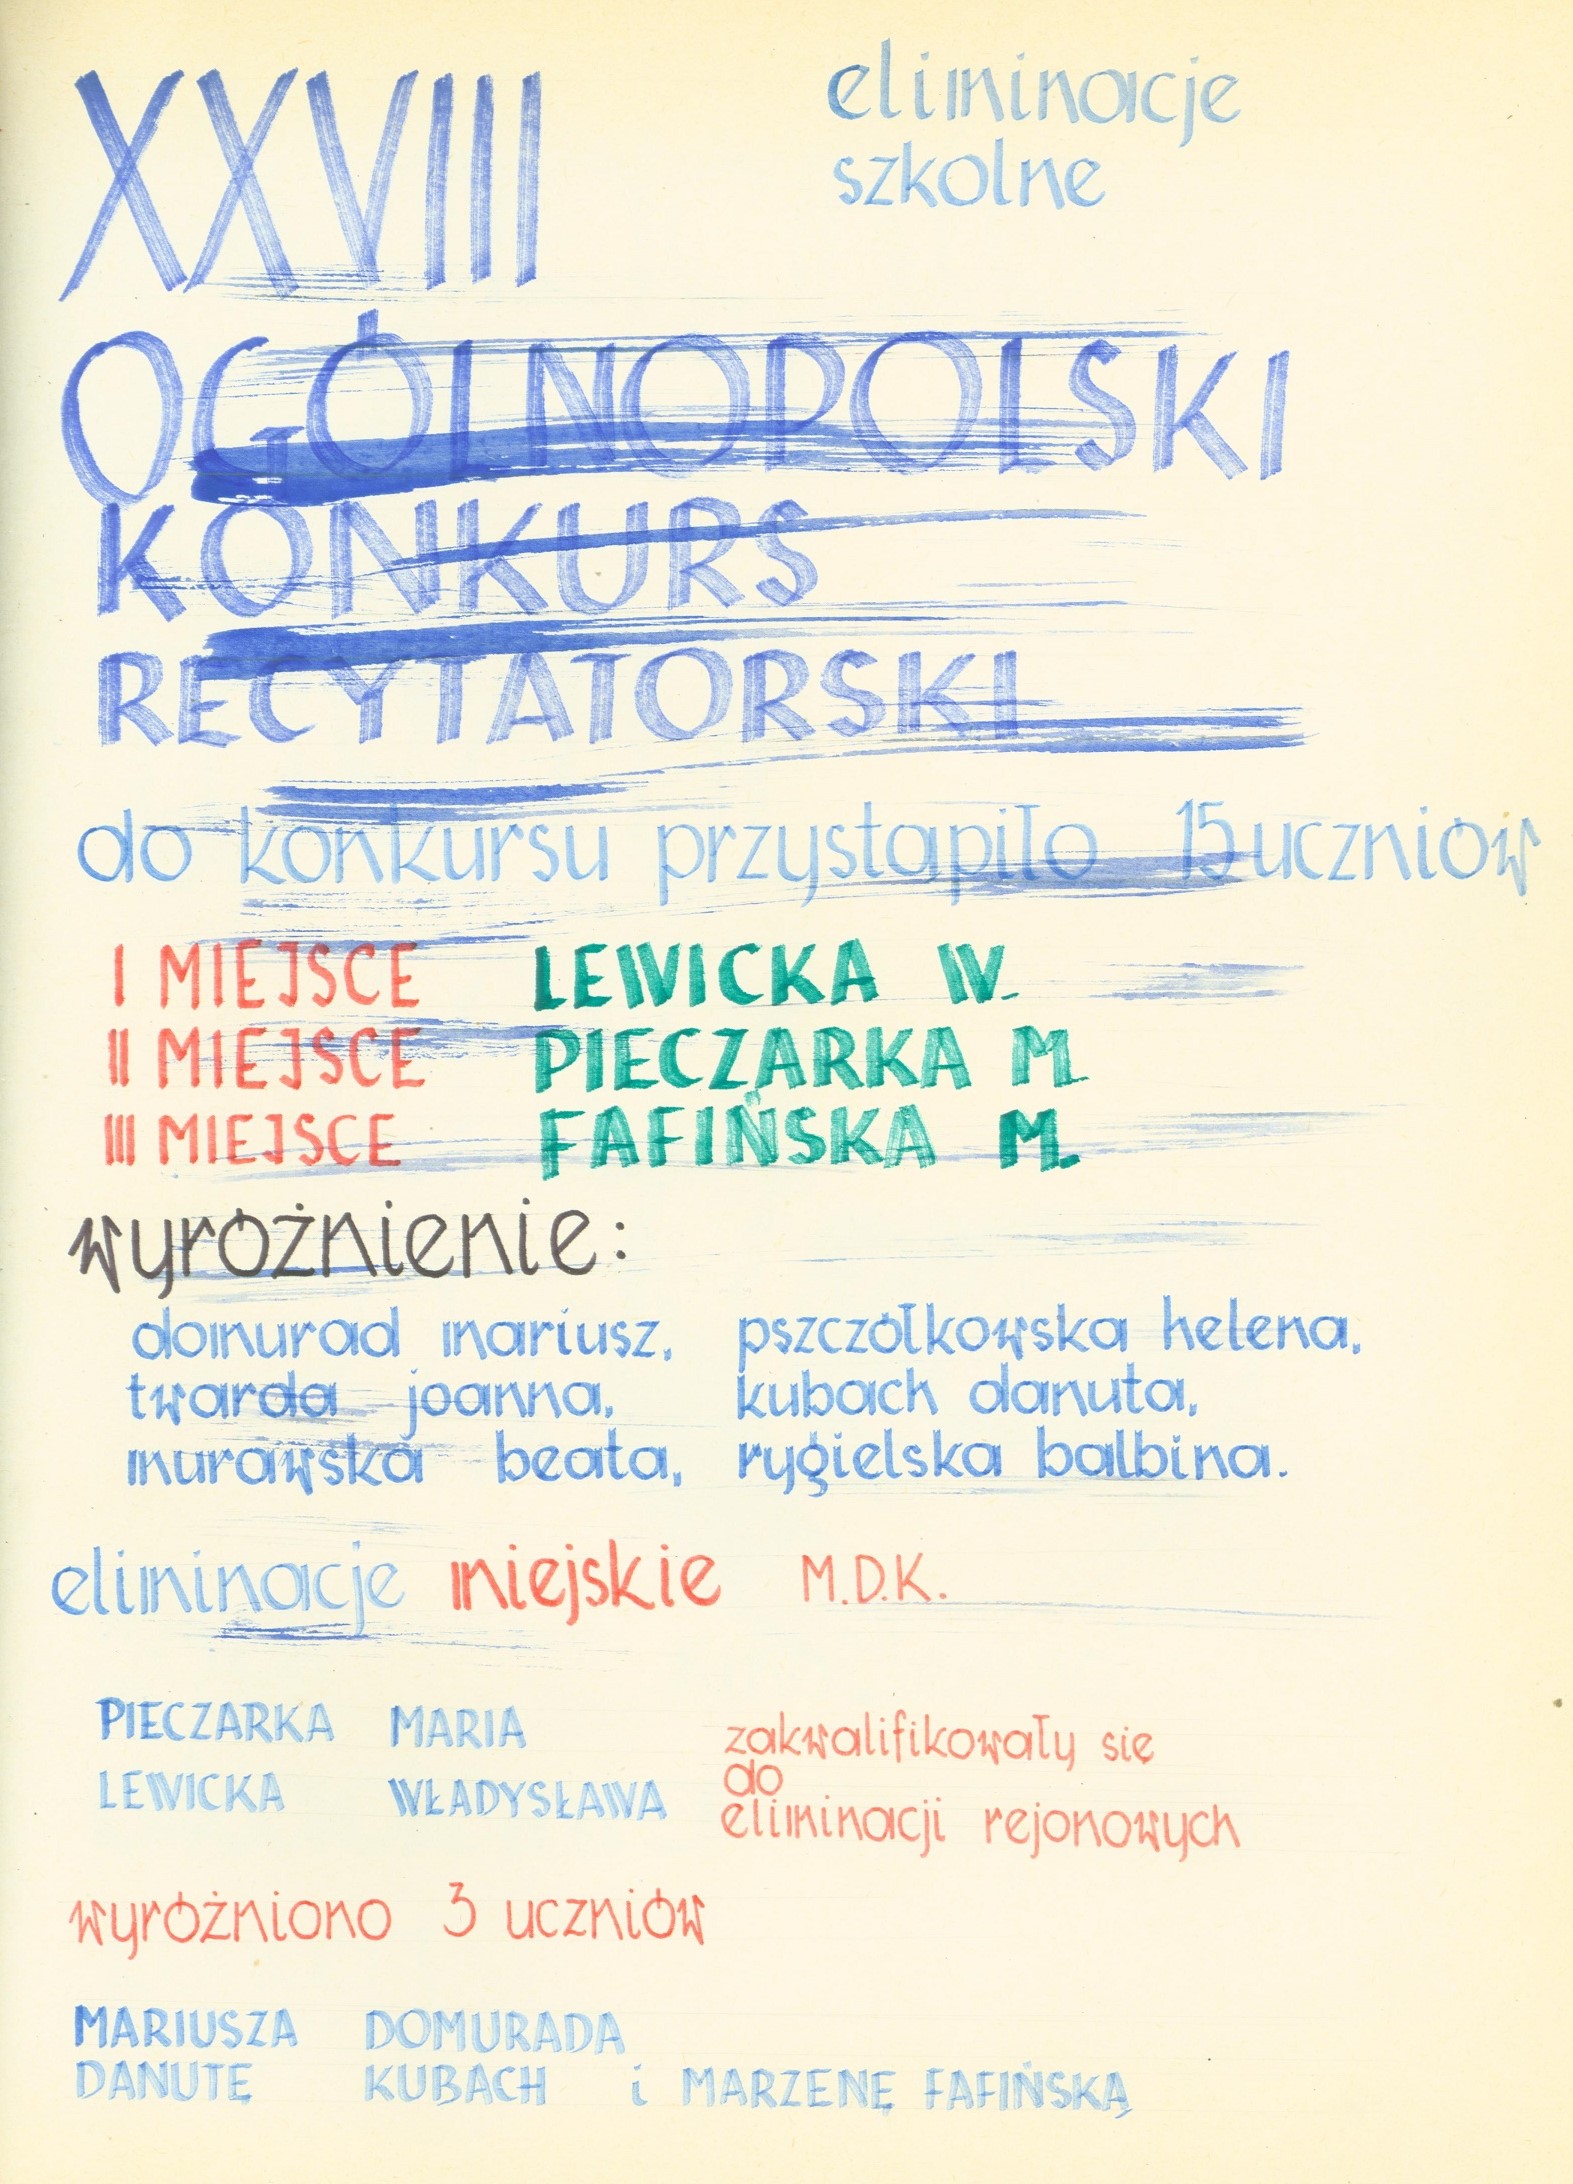 XXVIII
eliminacje
szkolne
OGÓLNOPOLSKI
KONKURS
RECYTATORSKI
do konkursu przystąpiło 15 uczniów
I MIEJSCE LEWICKA W.
II MIEJSCE PIECZARKA M.
III MIEJSCE FAFIŃSKA M.
wyróżnienie:
domurad mariusz, pszczółkowska helena,
twarda joanna, kubach danuta,
murawska beata, rygielska balbina.
eliminacje miejskie M.D.K.
PIECZARKA MARIA
LEWICKA WŁADYSŁAWA
zakwalifikowały się
do
eliminacji rejonowych
wyróżniono 3 uczniów
MARIUSZA DOMURADA
DANUTĘ KUBACH i MARZENĘ FAFIŃSKĄ